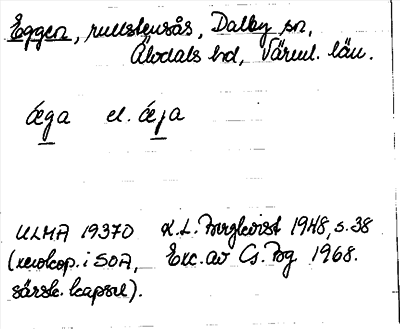 Eggen, rullstensås, Dalby sn,
Älvdals hd, Värml. län.
æga el. æja
ULMA 19370 K.L. Bergkvist 1948, s. 38
(xerokop. i SOA, Exc. av Cs. Bg 1968.
särsk. kapsel).